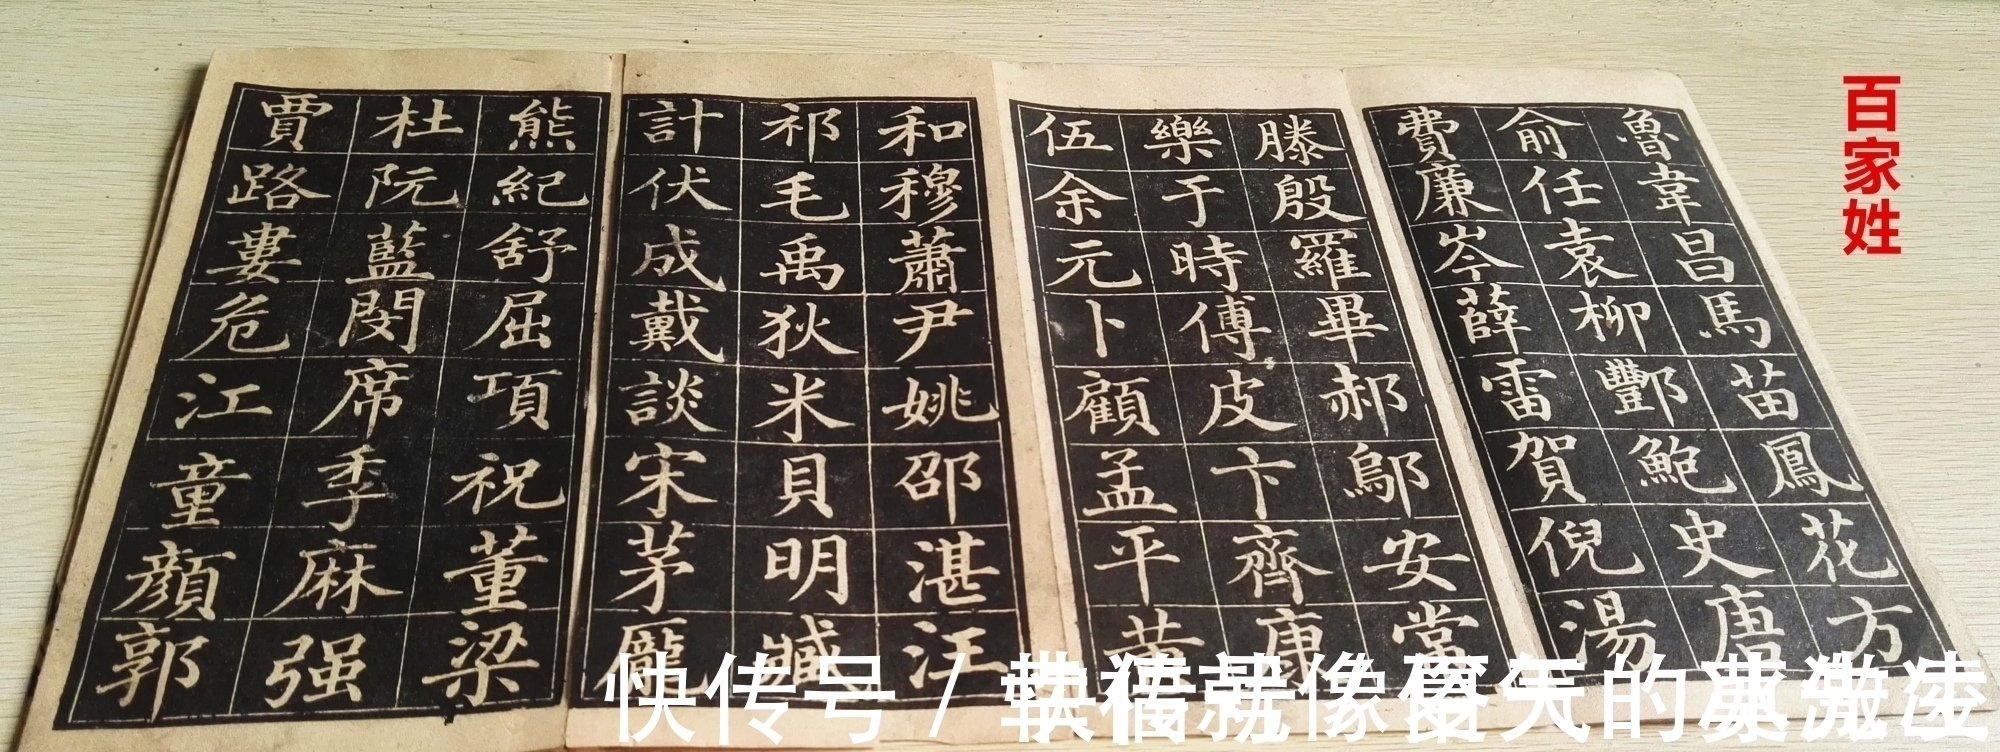 百家姓
魯韋昌馬苗鳳花方
俞任袁柳酆鮑史唐
費廉岑薛雷賀倪湯
滕殷羅畢郝鄔安常
樂于時傅皮卞齊康
伍余元卜顧孟平黃
和穆蕭尹姚邵湛汪
祁毛禹狄米貝明臧
計伏成戴談宋茅龐
熊紀舒屈項祝董梁
杜阮藍閔席季麻强
賈路婁危江童顔郭
快传号 /